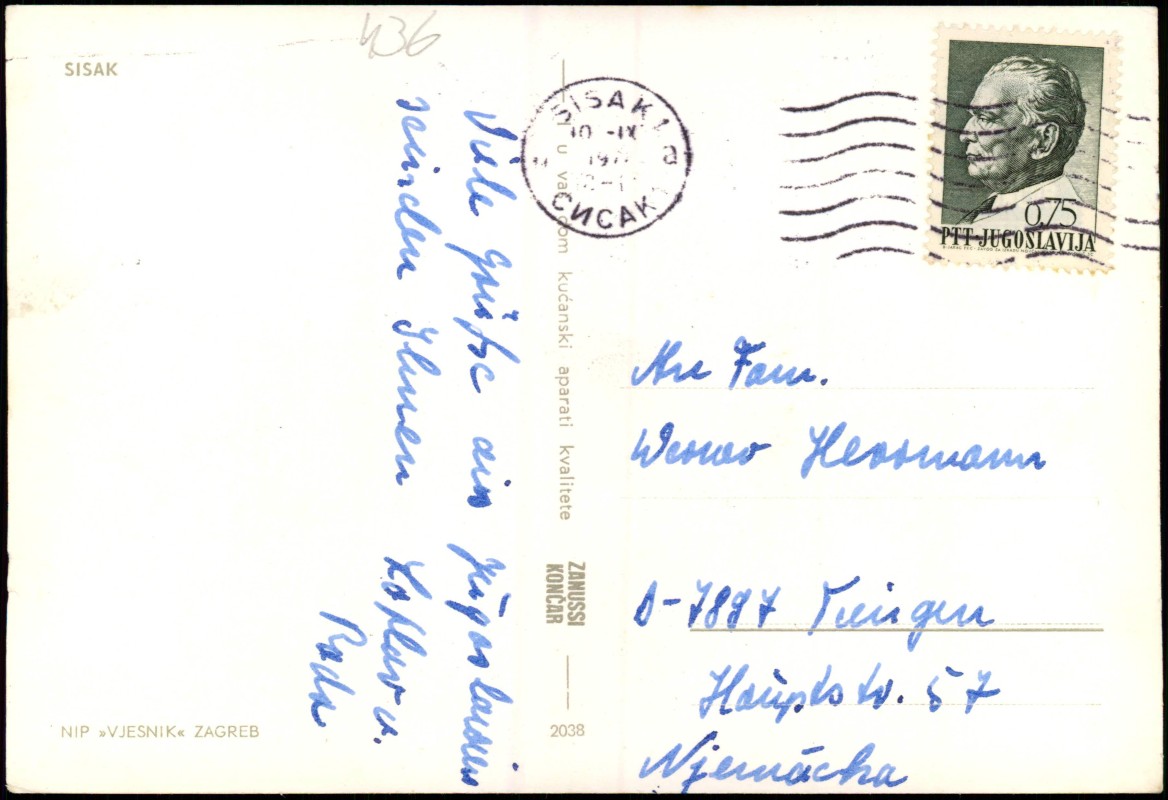 436
SISAK
Viele grüße aus Jugoslawien
senden Ihnen
Rada
NIP »VJESNIK« ZAGREB
u vašem domu kućanski aparati kvalitete
ZANUSSI
KONČAR
2038
SISAK 1
10 -IX
197
a
СИСАК
0,75
PTT-JUGOSLAVIJA
An Fam.
Werner Herrmann
D-7897 Tiengen
Hauptstr. 57
Njemačka